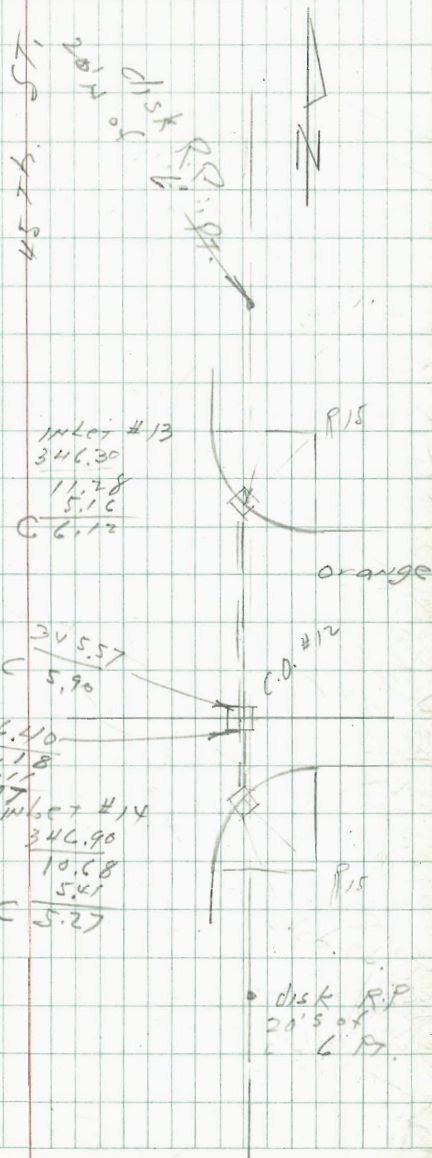 45Th. ST.
N
disk R.P.
20' N of
Inlet #13
346.30
11.28
5.16
C 6.12
R15
orange
C.O. #12
345.57
C 5.90
6.40
Inlet #14
346.90
10.68
5.41
C 5.27
R15
disk R.P
20'S of